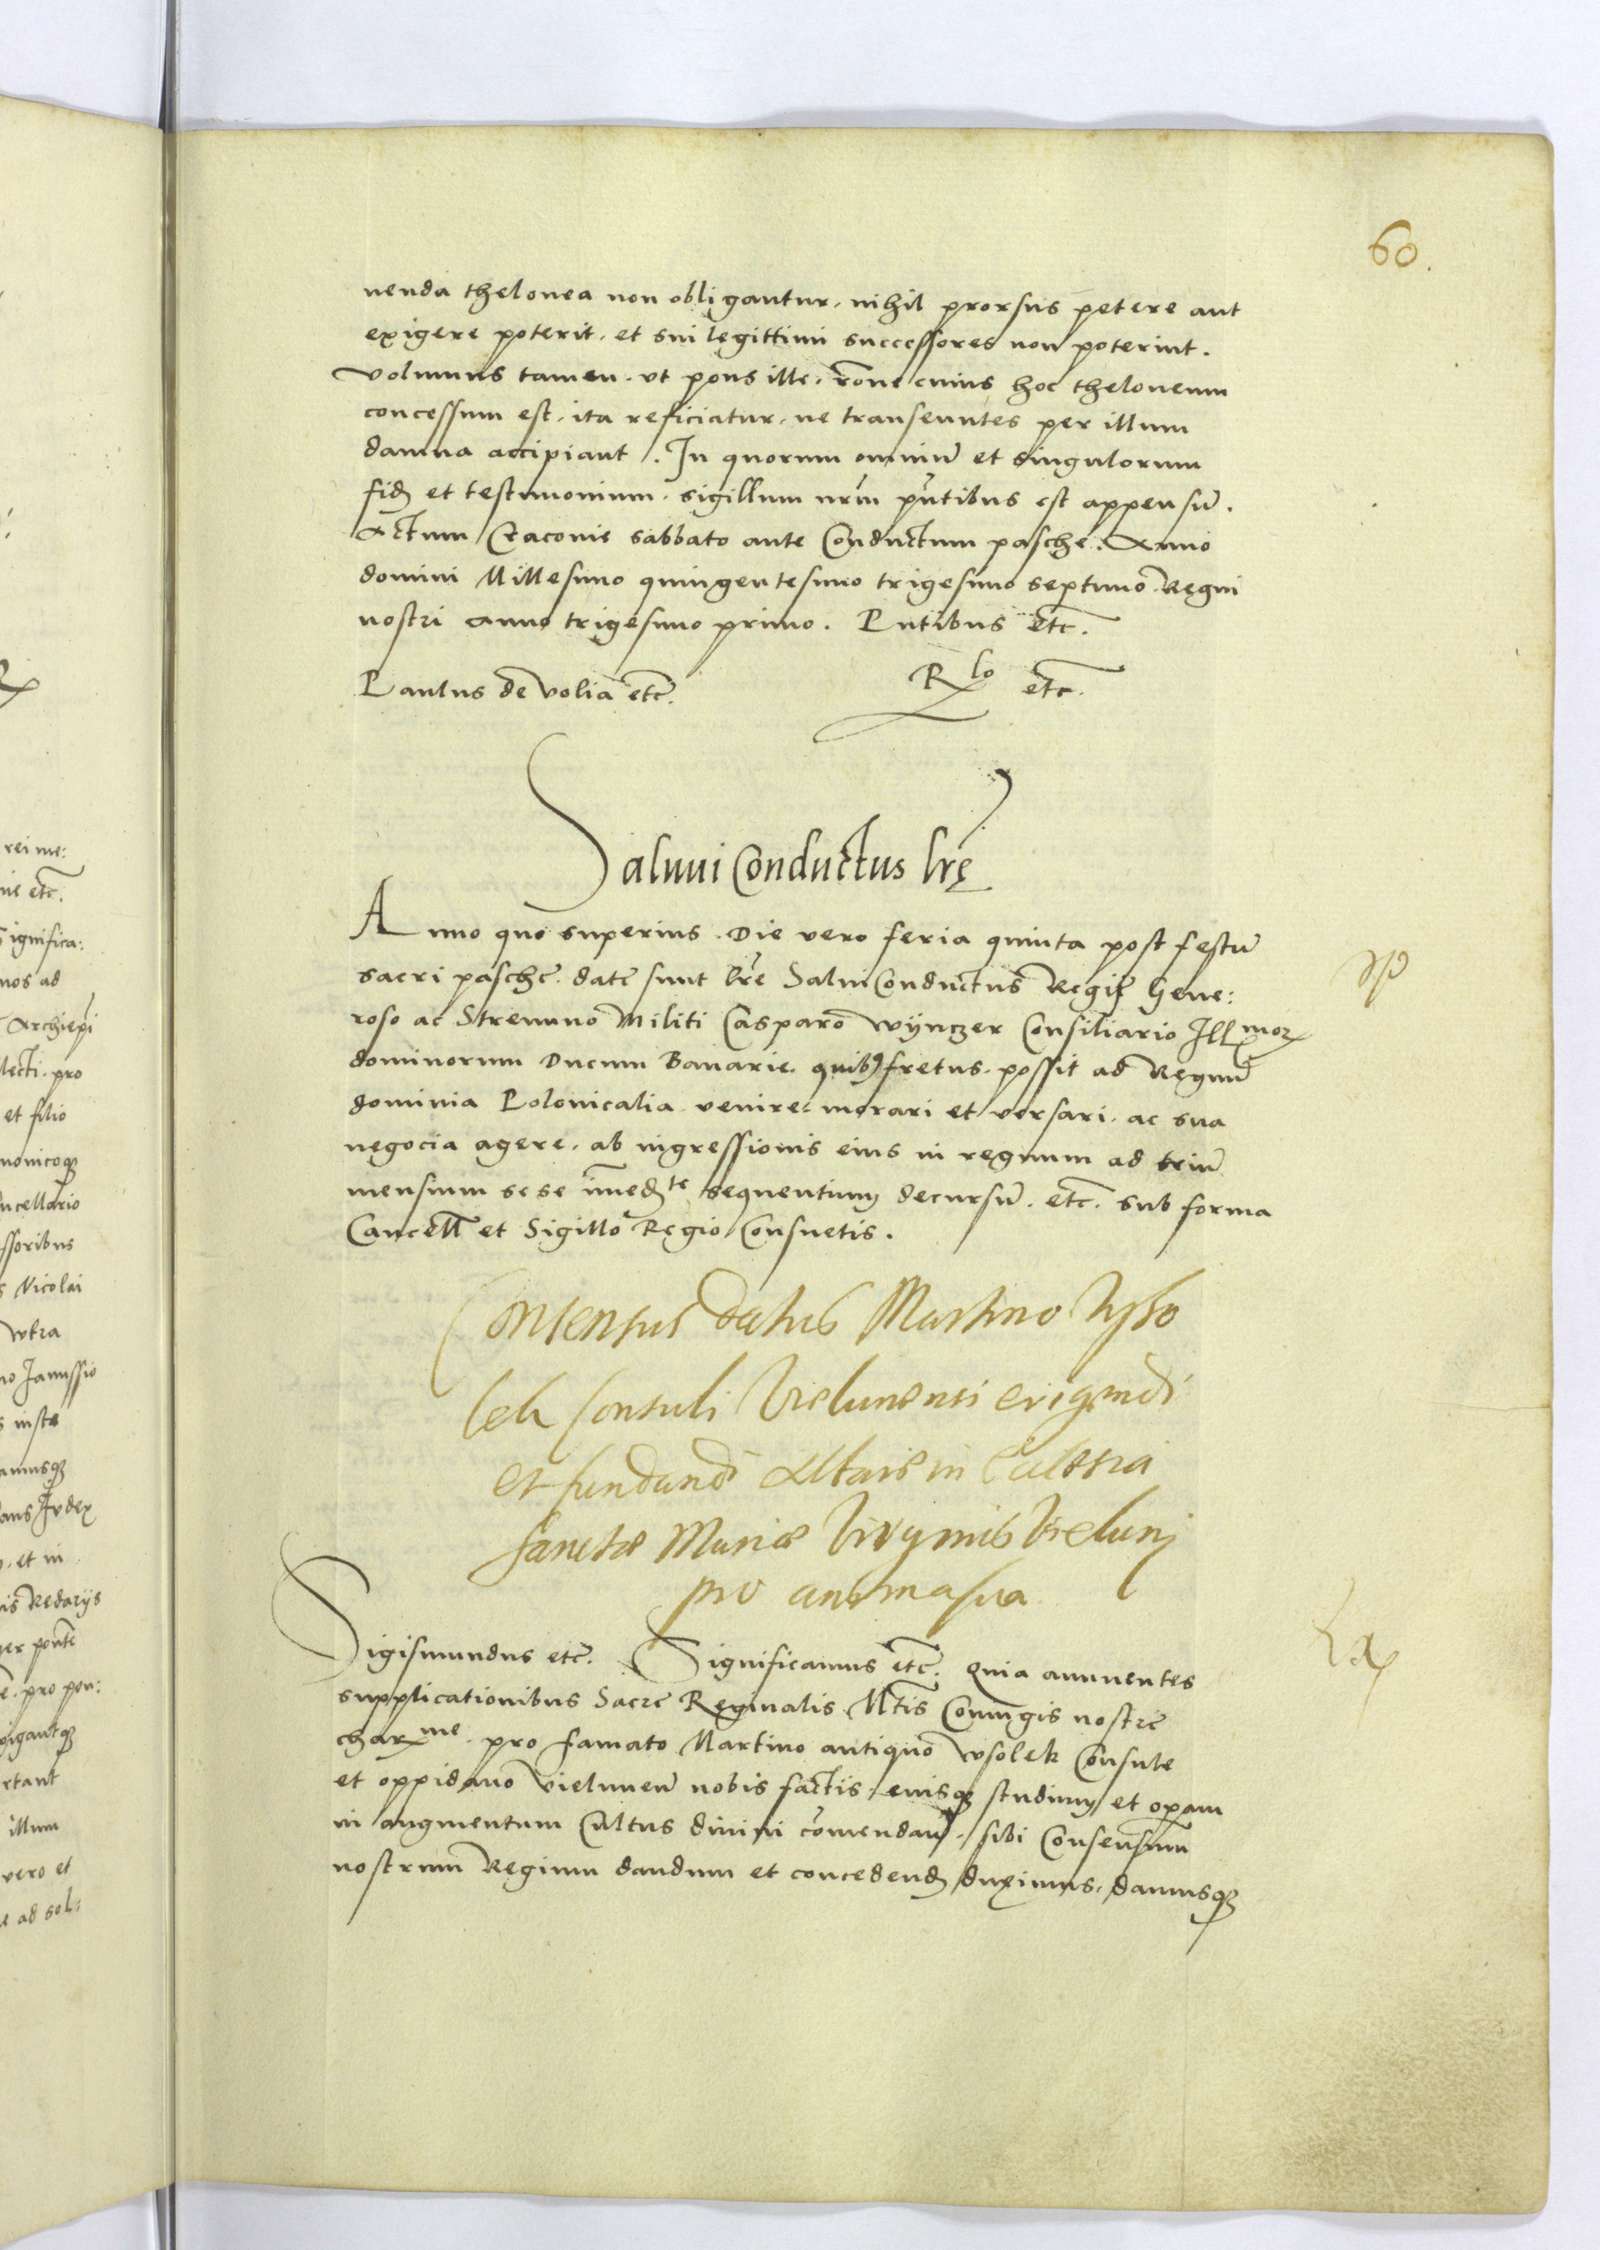 60.
nenda thelonea non obligantur, nihil prorsus petere aut
exigere poterit, et sui legittimi successores non poterint.
Volumus tamen, ut pons ille, rone cuius hoc theloneum
concessum est, ita reficiatur, ne transeuntes per illum
damna accipiant. In quorum omniu et singulorum
fid et testimonium, sigillum nrm pntibus est appensu.
Actum Cracovie sabbato ante Conductum pasche. Anno
domini Millesimo quingentesimo trigesimo septimo Regni
nostri anno trigesimo primo. Pntibus etc.
Paulus de Volia etc. Rlo etc.
Salvui Conductus lrę
Anno quo superius. Die vero feria quinta post festu
sacri paschę. datę sunt lre Salvi Conductus Regię Gene:
roso ac Strennuo Militi Casparo Wÿnczer Consiliario Illmor
dominorum Ducum Bavarie. quib fretus, possit ad Regnu
dominia Polonicalia venire, morari et versari, ac sua
negocia agere, ab ingressionis eius in regnum ad triu
mensium sese imedte sequentium decursu. etc. sub forma
Cancell et Sigillo Regio Consuetis.
Consensus datus Martino
Consuli Vielunensi erigendi
et fundandi Altare in Ecclesia
Sanctæ Mariæ Virginis Vieluny
pro anima sua
Sigismundus etc. Significamus etc. Quia annuentes
supplicationibus Sacrę Reginalis Mtis Coniugis nostrę
charme. pro famato Martino antiquo Wsolek Consule
et oppidano Vielunen nobis factis, eiusq studium et opam
in augmentum Cultus divini comendan, sibi Consensum
nostrum Regium dandum et concedend duximus, damusq